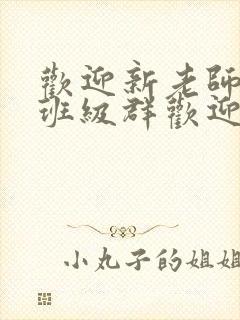 歡迎新老師
班級群歡迎
小丸子的姐姐